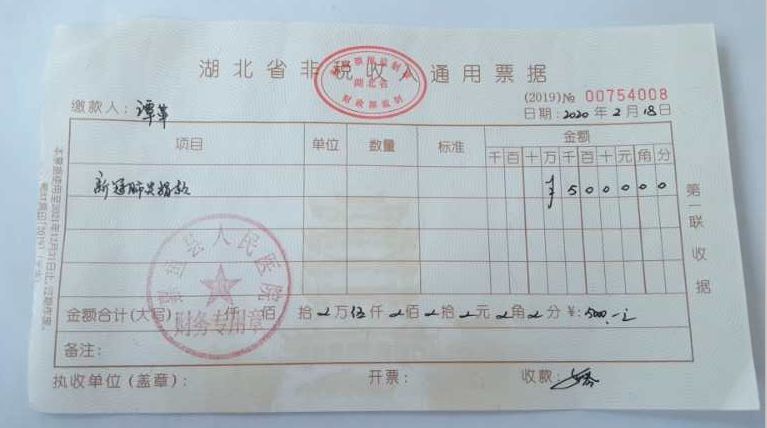 湖北省非税收入通用票据
湖北省
财政部监制
(2019)№ 00754008
缴款人：谭军
日期：2020年2月18日
项目 单位 数量 标准 金额
千 百 十 万 千 百 十 元 角 分
新冠肺炎捐款 ¥ 5 0 0 0 0 0
第一联 收据
县人民医院
财务专用章
金额合计(大写) 仟 佰 拾 万伍仟 佰 拾 元 角 分 ¥:
备注：
执收单位(盖章)： 开票： 收款：